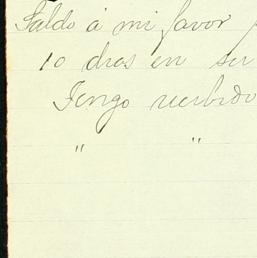 Saldo á mi favor
10 dias en su
Tengo recibido
" "